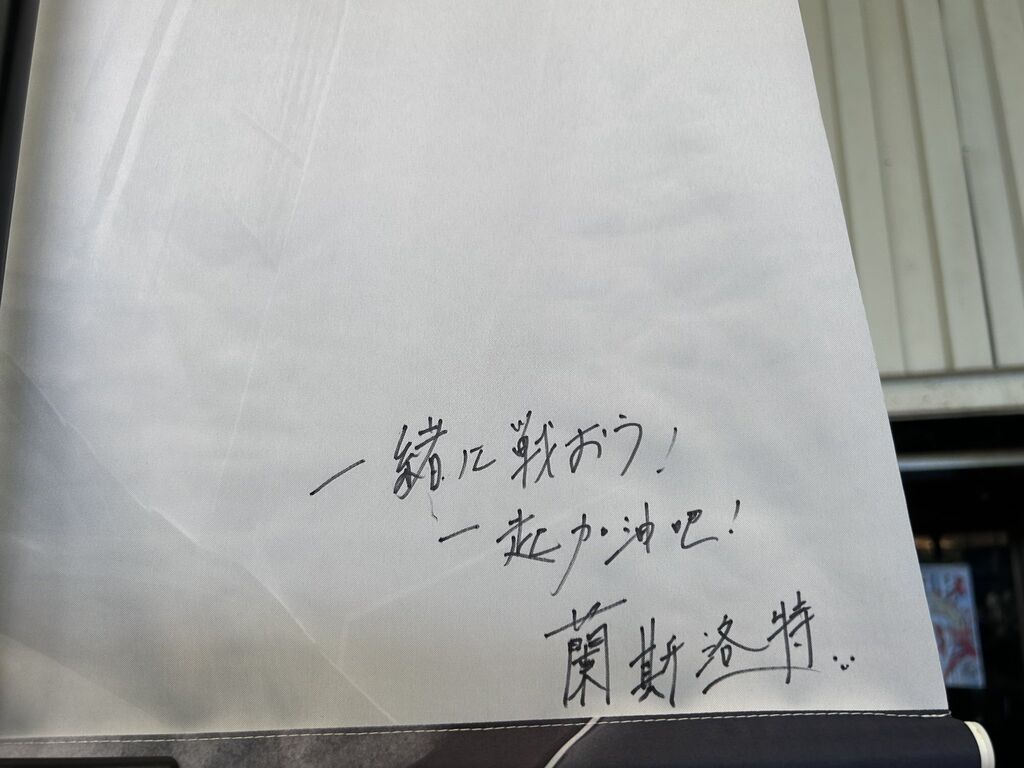 一緒に戦おう!
一起加油吧!
蘭斯洛特